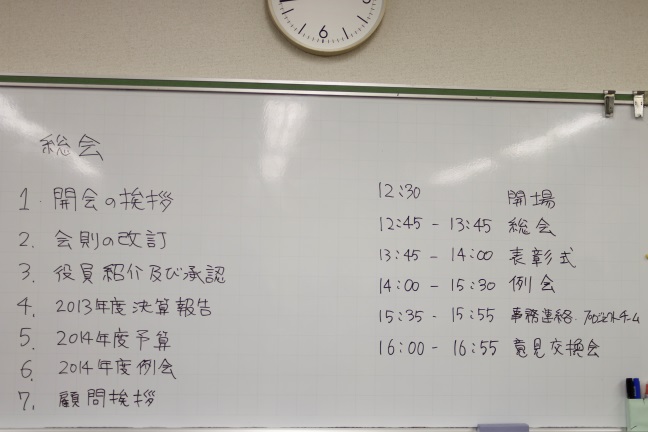 6
総会
1. 開会の挨拶
2. 会則の改訂
3. 役員紹介及び承認
4. 2013年度決算報告
5. 2014年度予算
6. 2014年度例会
7. 顧問挨拶
12:30 開場
12:45 - 13:45 総会
13:45 - 14:00 表彰式
14:00 - 15:30 例会
15:35 - 15:55 事務連絡・プロジェクトチーム
16:00 - 16:55 意見交換会